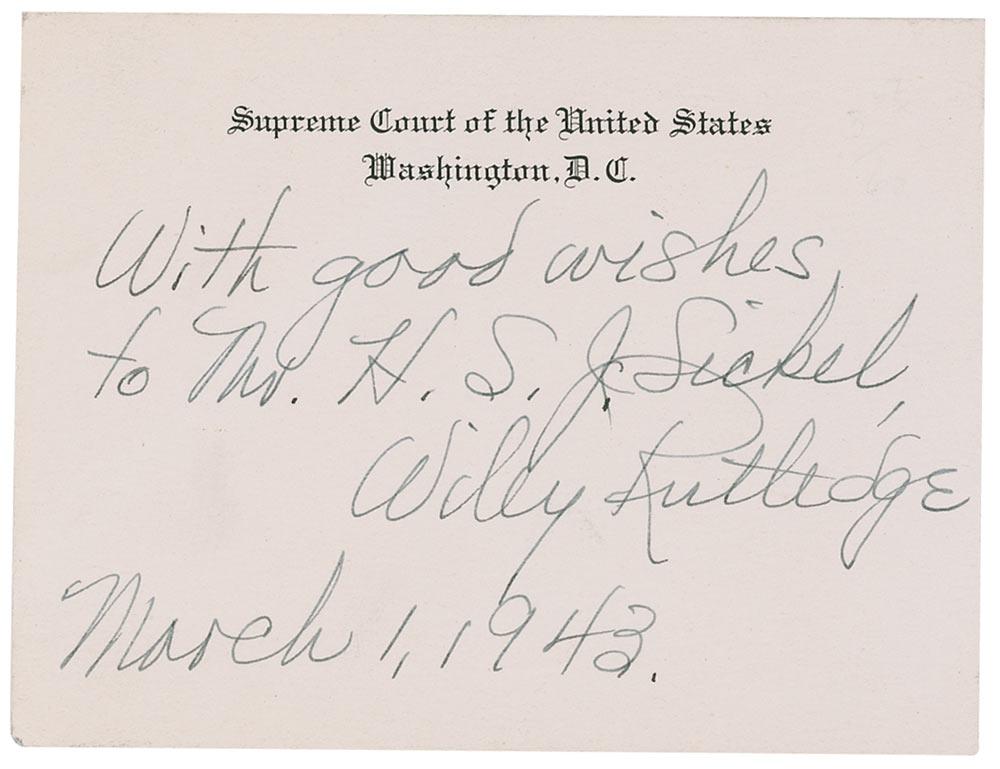 Supreme Court of the United States
Washington, D.C.
With good wishes
to Mr. H. S. J. Sickel,
Wiley Rutledge
March 1, 1943.